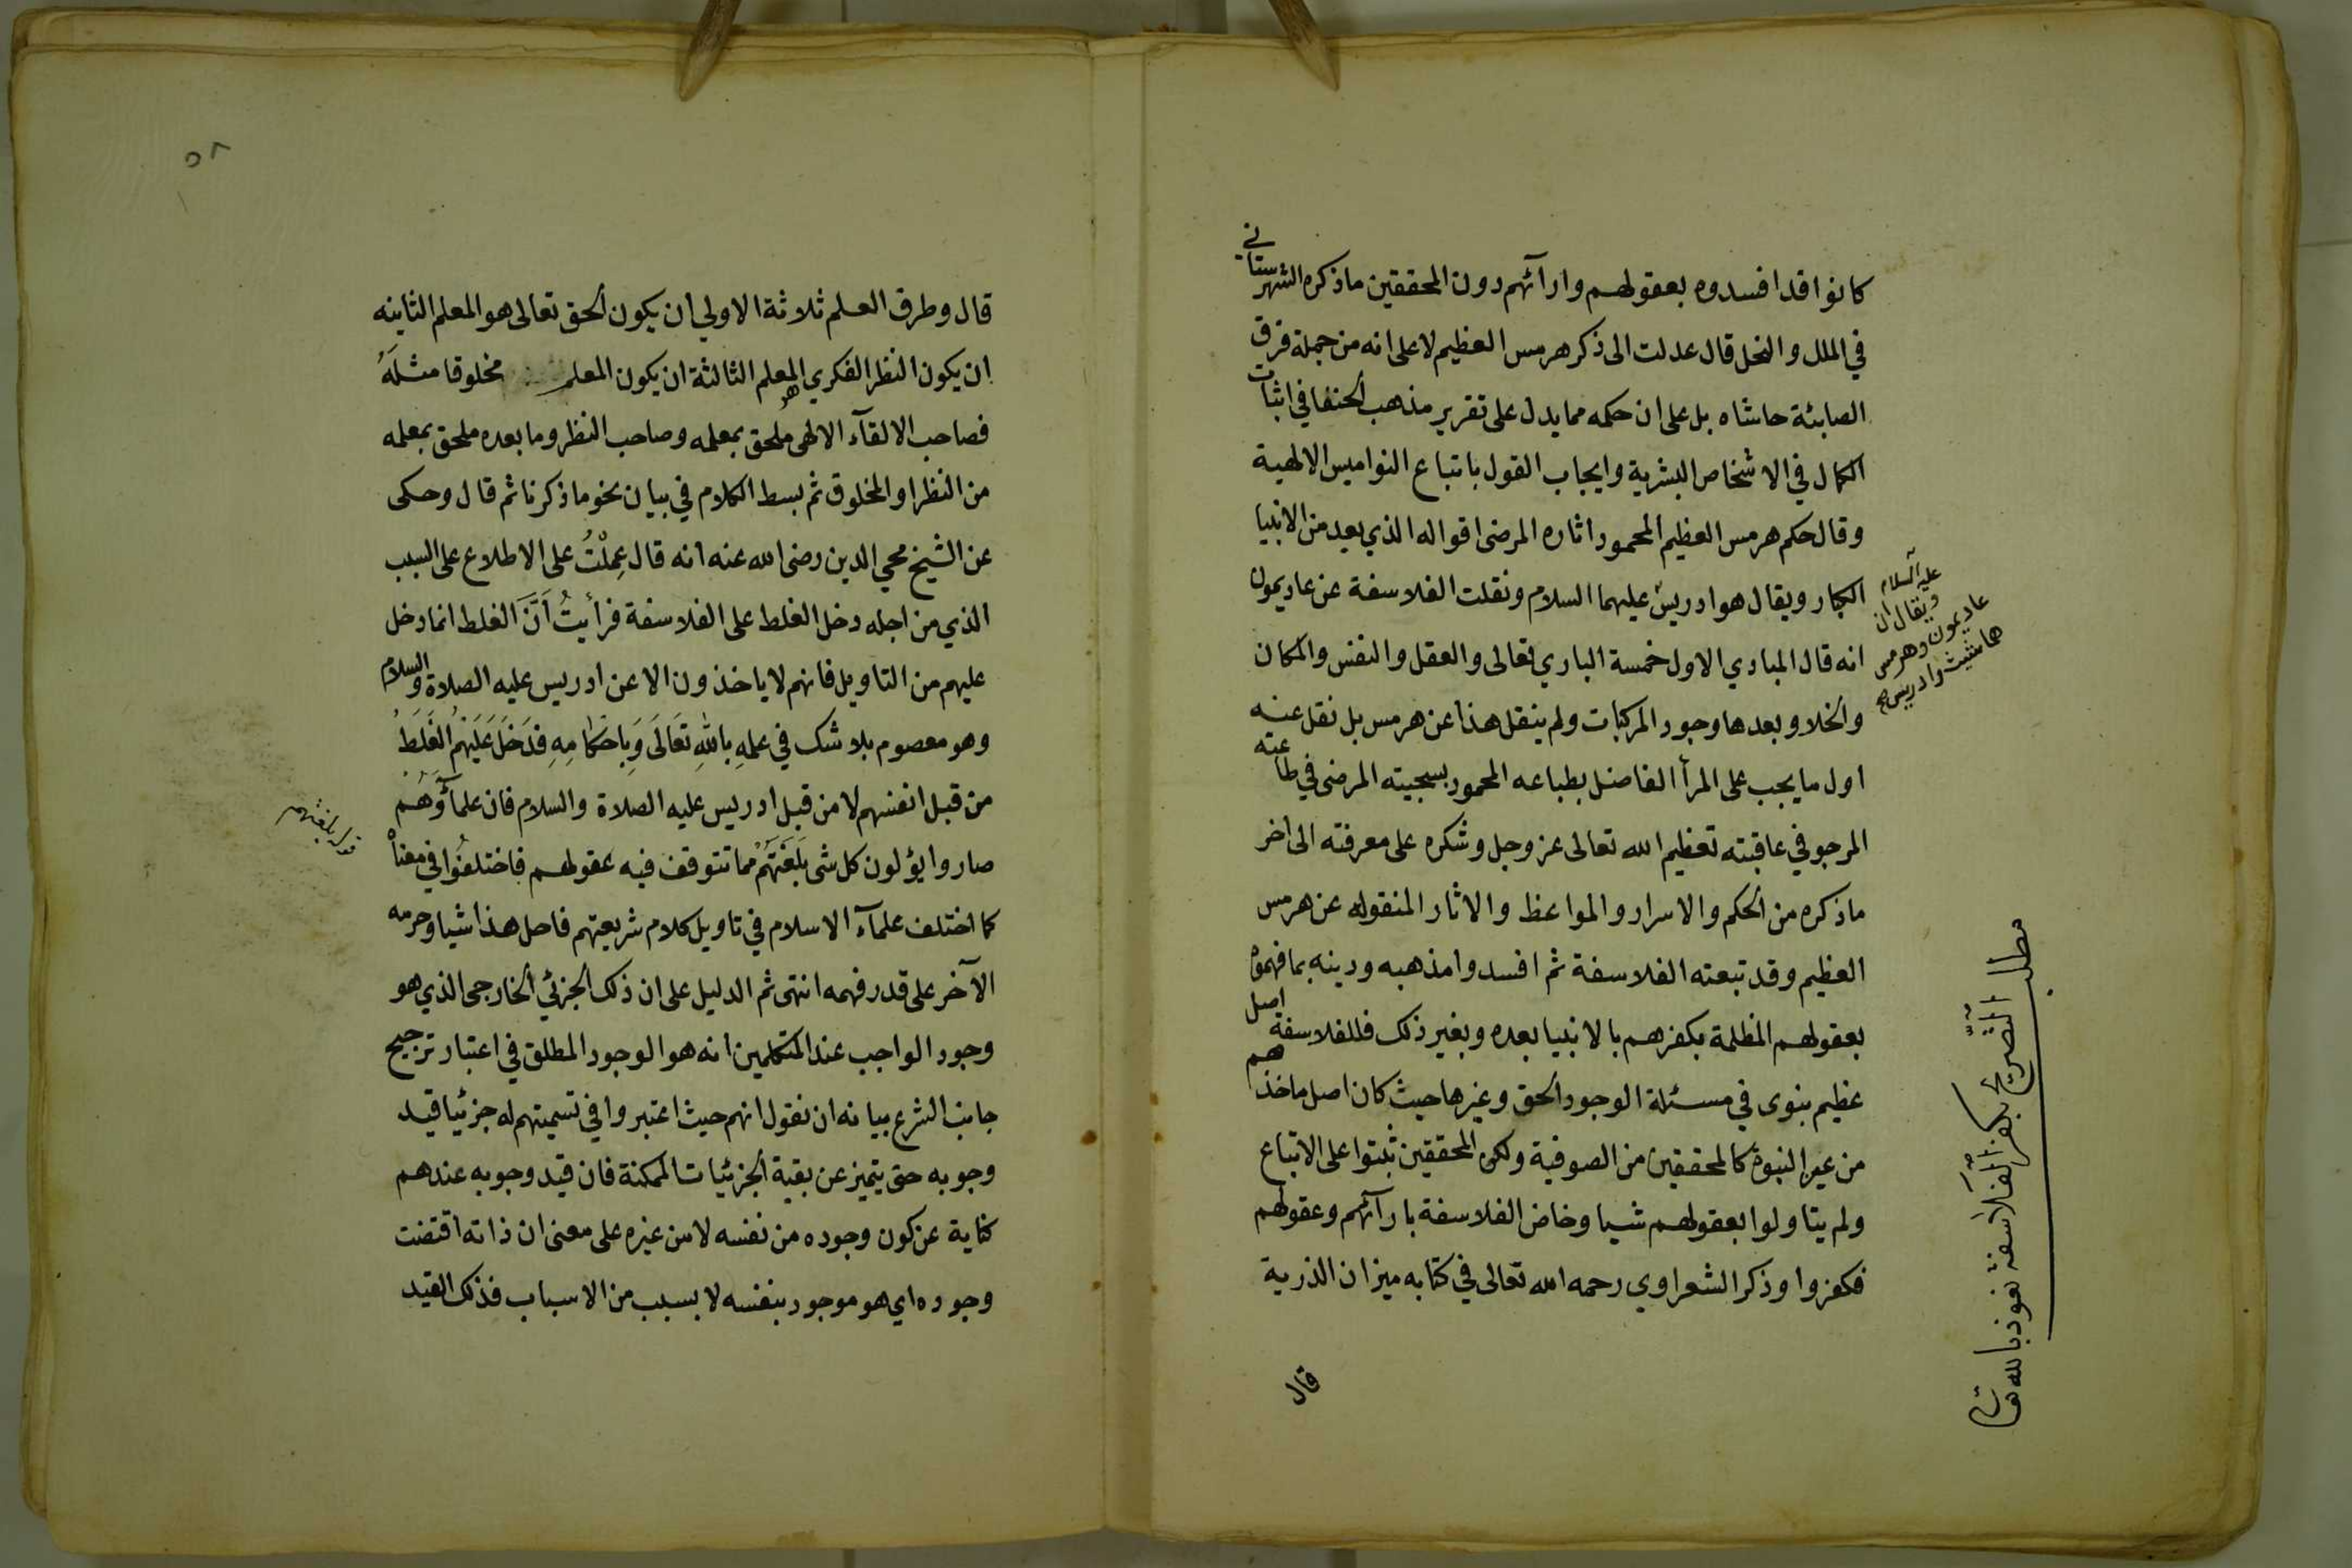 كانوا قد افسدوه بعقولهم وارآئهم دون المحققين ماذكره الشهرستاني
في الملل والنحل قال عدلت الى ذكر هرمس العظيم لا على انه من جملة فرق
الصابئة حاشاه بل على ان حكمه مما يدل على تقرير مذهب الحنفا في اثبات
الكمال في الاشخاص البشرية وايجاب القول باتباع النواميس الالهية
وقال حكم هرمس العظيم المحمود اثاره المرضى اقواله الذي يعد من الانبيا
الكبار ويقال هو ادريس عليهما السلام ونقلت الفلاسفة عن عاديمون
انه قال المبادي الاول خمسة الباري تعالى والعقل والنفس والمكان
والخلا وبعدها وجود المركبات ولم ينقل هذا عن هرمس بل نقل عنه
اول ما يجب على المرأ الفاضل بطباعه المحمود بسجيته المرضى في طاعته
المرجو في عاقبته تعظيم الله تعالى عز وجل وشكره على معرفته الى اخر
ماذكره من الحكم والاسرار والمواعظ والاثار المنقوله عن هرمس
العظيم وقد تبعته الفلاسفة ثم افسدوا مذهبه ودينه بما فهموه
بعقولهم المظلمة بكفرهم بالانبيا بعده وبغير ذلك فللفلاسفة اصل
عظيم بنوى في مسئلة الوجود الحق وغيرها حيث كان اصل ماخذهم
من عين النبوة كالمحققين من الصوفية ولكن المحققين ثبتوا على الاتباع
ولم يتاولوا بعقولهم شيا وخاض الفلاسفة بارآئهم وعقولهم
فكفروا وذكر الشعراوي رحمه الله تعالى في كتابه ميزان الذرية
قال
عليه السلام
ويقال ان
عاديمون وهرمس
هما شيث وادريس
مطلب التصريح بكفر الفلاسفة نعوذ بالله تعالى
٥٨
قال وطرق العلم ثلاثة الاولى ان يكون الحق تعالى هو المعلم الثانيه
ان يكون النظر الفكري هو المعلم الثالثة ان يكون المعلم مخلوقا مثله
فصاحب الالقآء الالهى ملحق بمعلمه وصاحب النظر وما بعده ملحق بمعلمه
من النظر او المخلوق ثم بسط الكلام في بيان نحو ماذكرنا ثم قال وحكى
عن الشيخ محي الدين رضى الله عنه انه قال عملْتُ على الاطلاع على السبب
الذي من اجله دخل الغلط على الفلاسفة فرأيتُ اَنَّ الغلط انما دخل
عليهم من التاويل فانهم لا ياخذون الا عن ادريس عليه الصلاة والسلام
وهو معصوم بلا شك في علمهِ باللهِ تعَالَى وَبِاحكامِهِ فدَخَلَ عَلَيْهِمُ الغَلَطُ
من قبل انفسهم لا من قبل ادريس عليه الصلاة والسلام فان علمآؤَهُم
صاروا يؤلون كل شى بَلَغَتْهُمْ مما تتوقف فيه عقولهم فاختلفُوا في معناه
كما اختلف علمآء الاسلام في تاويل كلام شريعتهم فاحل هذا شيا وحرمه
الآخر على قدر فهمه انتهى ثم الدليل على ان ذلك الجزئي الخارجى الذي هو
وجود الواجب عند المتكلمين انه هو الوجود المطلق في اعتبار ترجيح
جانب الشرع بيانه ان نقول انهم حيث اعتبروا في تسميتهم له جزئيا قيد
وجوبه حتى يتميز عن بقية الجزئيات الممكنة فان قيد وجوبه عندهم
كناية عن كون وجوده من نفسه لا من غيره على معنى ان ذاته اقتضت
وجوده اي هو موجود بنفسه لا بسبب من الاسباب فذلك القيد
قوله بلغتهم